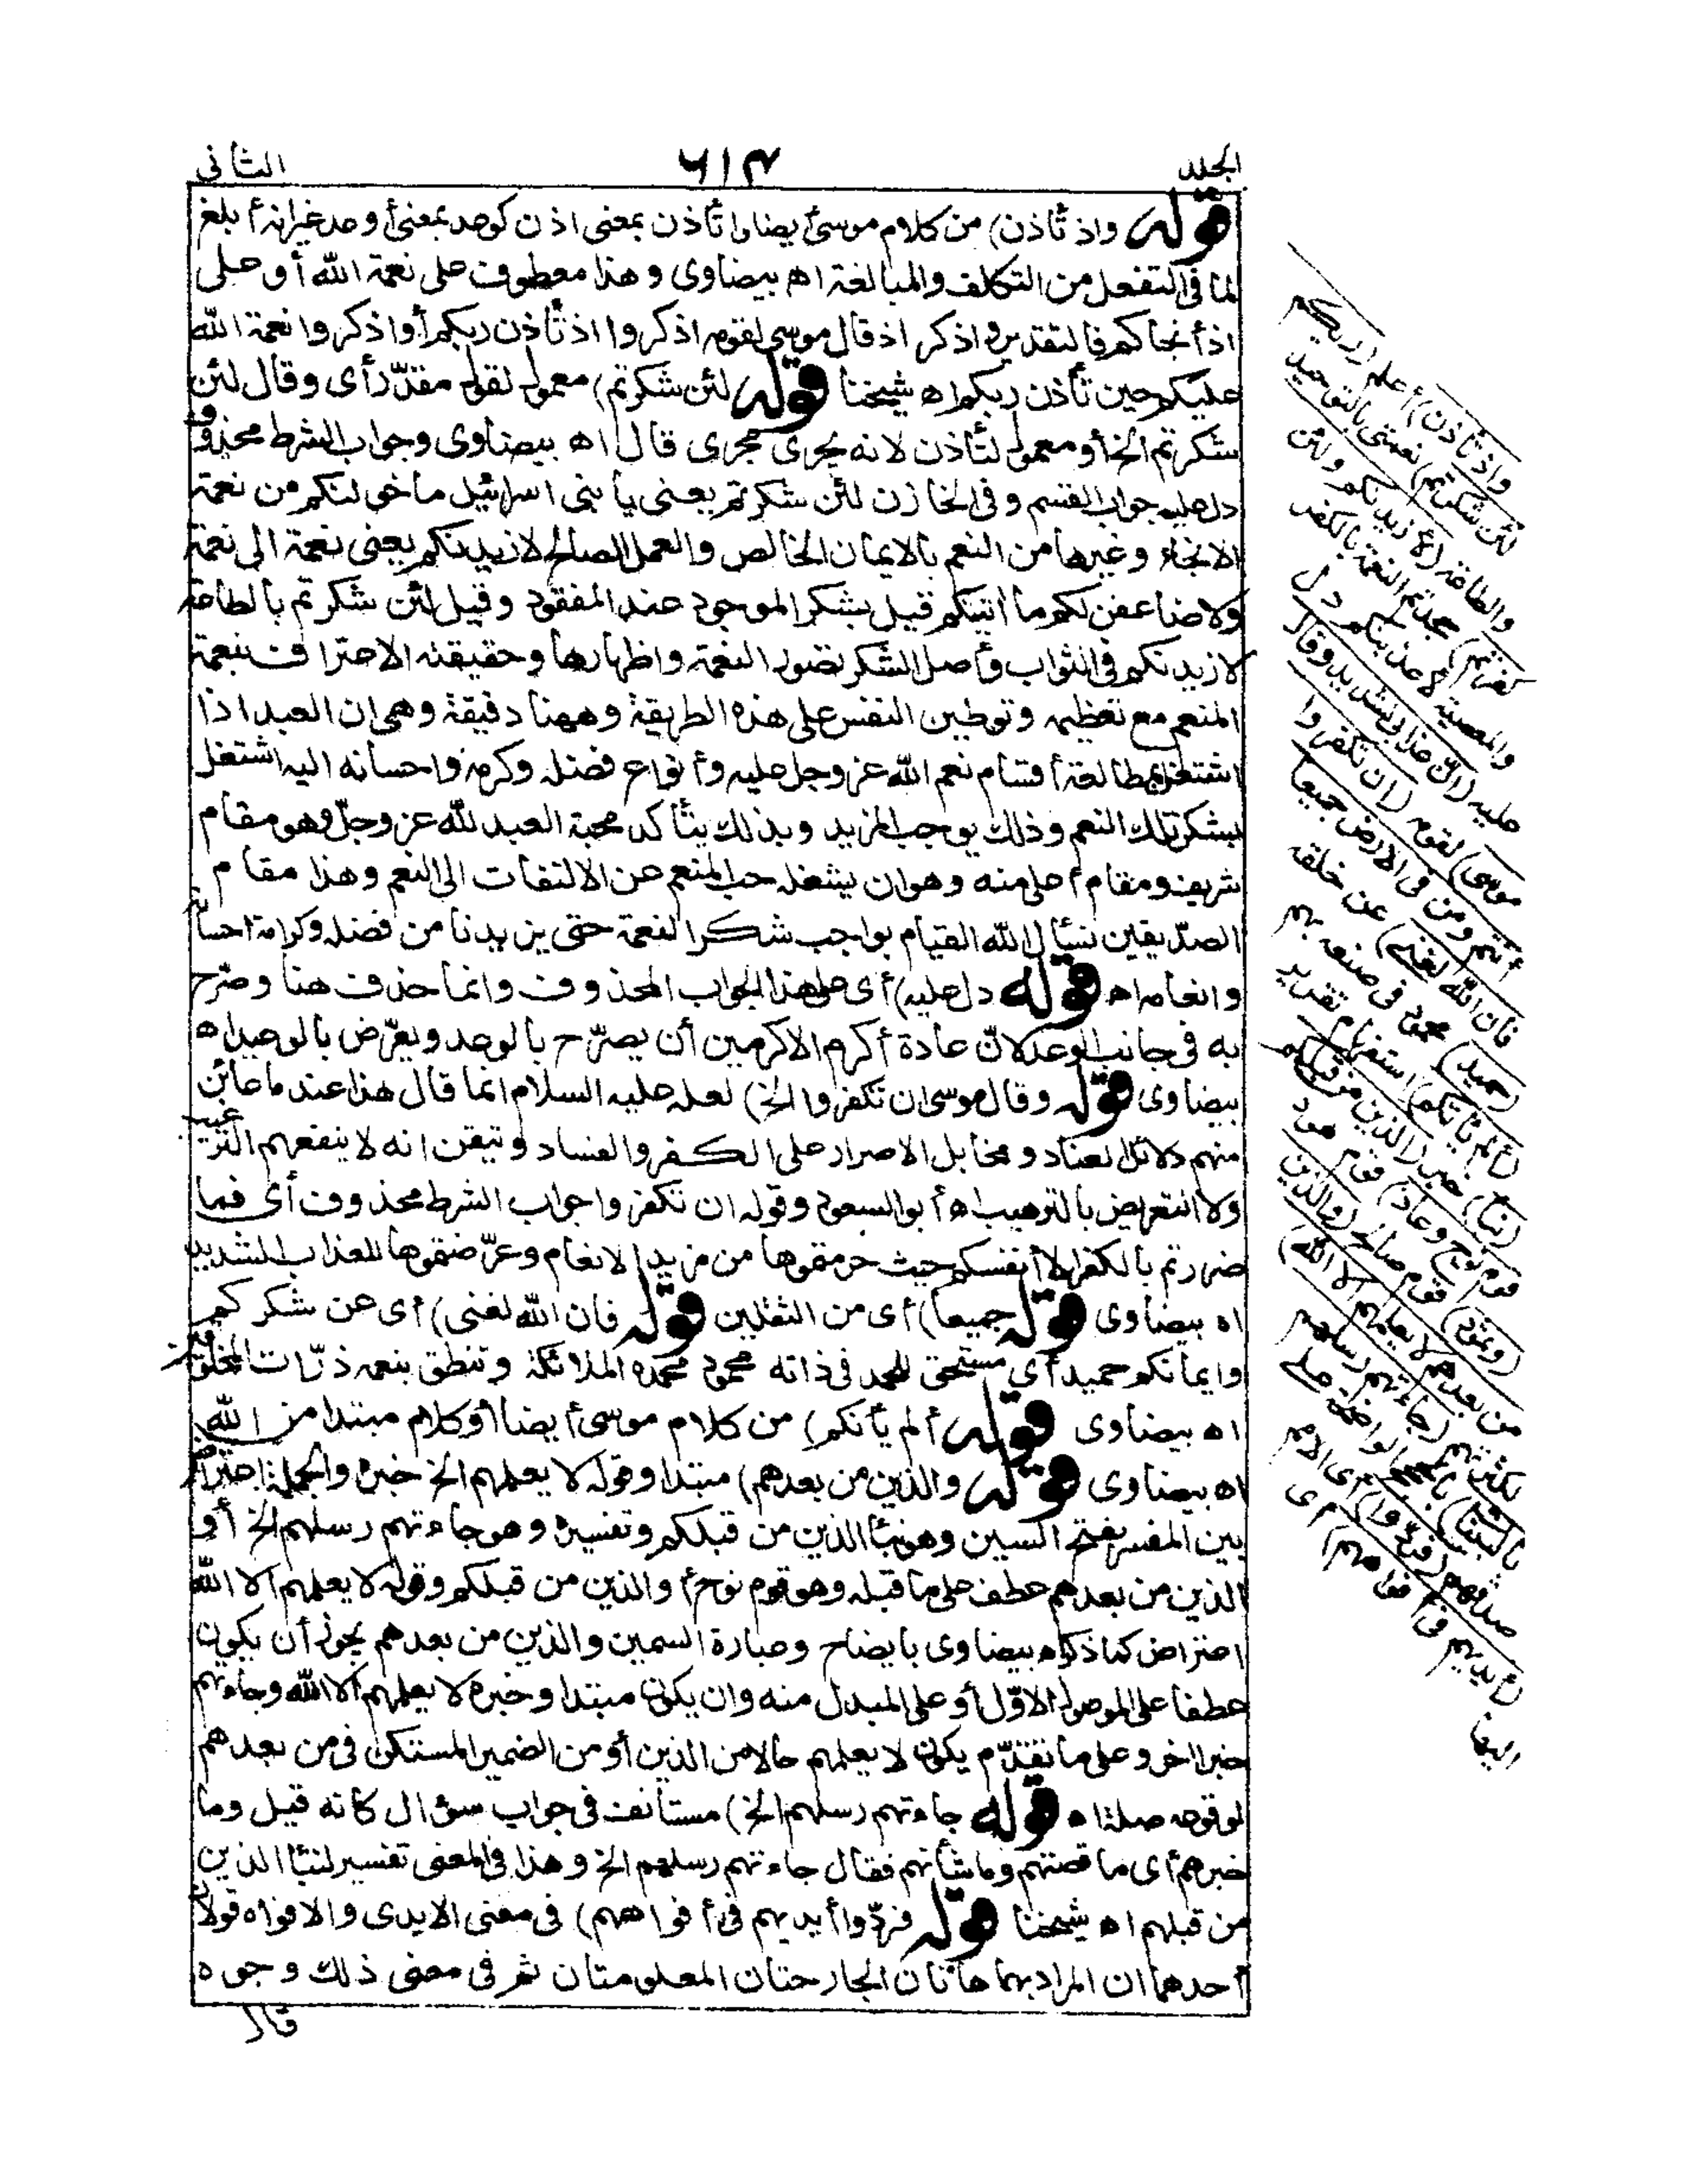 الجلد ٦١٣ الثانى
قوله واذ تأذن) من كلام موسى أيضا واتأذن بمعنى اذن كوعد بمعنى أوعد غيرانه أبلغ
لما فى التفعل من التكلف والمبالغة اه بيضاوى وهذا معطوف على نعمة الله أو على
اذ أنجاكم فالتقدير واذكر اذ قال موسى لقومه اذكروا اذ تأذن ربكم أو اذكروا نعمة الله
عليكم حين تأذن ربكم اه شيخنا قوله لئن شكرتم) معمول لقول مقدّر أى وقال لئن
شكرتم الخ أو معمول لتأذن لانه يجرى مجرى قال اه بيضاوى وجواب الشرط محذوف
دل عليه جواب القسم وفى الخازن لئن شكرتم يعنى يا بنى اسرائيل ما خولتكم من نعمة
الانجاء وغيرها من النعم بالايمان الخالص والعمل الصالح لازيدنكم يعنى نعمة الى نعمة
ولاضاعفن لكم ما آتيتكم قيل بشكر الموجود عند المفقود وقيل لئن شكرتم بالطاعة
لازيدنكم فى الثواب وأصل الشكر تصور النعمة واظهارها وحقيقته الاعتراف بنعمة
المنعم مع تعظيمه وتوطين النفس على هذه الطريقة وههنا دقيقة وهى ان العبد اذا
اشتغل بمطالعة أقسام نعم الله عز وجل عليه وأنواع فضله وكرمه واحسانه اليه اشتغل
بشكر تلك النعم وذلك يوجب المزيد وبذلك يتأكد محبة العبد لله عز وجلّ وهو مقام
شريف ومقام أعلى منه وهو ان يشغله حب المنعم عن الالتفات الى النعم وهذا مقام
الصدّيقين نسأل الله القيام بواجب شكر النعمة حتى يزيدنا من فضله وكرامة احسانه
وانعامه اه قوله دل عليه) أى على هذا الجواب المحذوف وانما حذف هنا وصرّح
به فى جانب الوعد لانّ عادة أكرم الاكرمين أن يصرّح بالوعد ويعرّض بالوعيد اه
بيضاوى قوله وقال موسى ان تكفروا الخ) لعله عليه السلام انما قال هذا عند ما عاين
منهم دلائل العناد ومخايل الاصرار على الكفر والفساد وتيقن انه لا ينفعهم الترغيب
ولا التعريض بالترهيب اه أبو السعود وقوله ان تكفروا جواب الشرط محذوف أى فما
ضررتم بالكفر الا أنفسكم حيث حرمتموها من مزيد الانعام وعرّضتموها للعذاب الشديد
اه بيضاوى قوله جميعا) أى من الثقلين قوله فان الله لغنى) أى عن شكركم
وايمانكم حميد أى مستحق للحمد فى ذاته محمود تحمده الملائكة وتنطق بنعمه ذرّات المخلوقات
اه بيضاوى قوله ألم يأتكم) من كلام موسى أيضا أو كلام مبتدا من الله
اه بيضاوى قوله والذين من بعدهم) مبتدا وقوله لا يعلمهم الخ خبره والجملة اعتراض
بين المفسر بفتح السين وهو نبأ الذين من قبلكم وتفسيره وهو جاءتهم رسلهم الخ أو
الذين من بعدهم عطف على ما قبله وهو قوم نوح أو الذين من قبلكم وقوله لا يعلمهم الا الله
اعتراض كذا ذكره بيضاوى بايضاح وعبارة السمين والذين من بعدهم يجوز أن يكون
عطفا على الموصول الاوّل أو على المبدل منه وان يكون مبتدا وخبره لا يعلمهم الا الله وجاءتهم
خبرا آخر وعلى ما تقدّم يكون لا يعلمهم حالا من الذين أو من الضمير المستكن فى من بعدهم
لوقوعه صلة اه قوله جاءتهم رسلهم الخ) مستأنف فى جواب سؤال كانه قيل وما
خبرهم أى ما قصتهم وما شأنهم فقال جاءتهم رسلهم الخ وهذا فى المعنى تفسير لنبأ الذين
من قبلهم اه شيخنا قوله فردّوا أيديهم فى أفواههم) فى معنى الايدى والافواه قولان
أحدهما ان المراد بهما هاتان الجارحتان المعلومتان ثم فى معنى ذلك وجوه
قال
(واذ تأذن) أعلم (ربكم
لئن شكرتم) نعمتى بالتوحيد
والطاعة (لازيدنكم ولئن
كفرتم) جحدتم النعمة بالكفر
والمعصية لاعذبنكم دل
عليه (انّ عذابى لشديد وقال
موسى) لقومه (ان تكفروا
أنتم ومن فى الارض جميعا
فان الله لغنى) عن خلقه
(حميد) محمود فى صنعه بهم
(ألم يأتكم) استفهام تقرير
(نبأ) خبر (الذين من قبلكم
قوم نوح وعاد) قوم هود
(وثمود) قوم صالح (والذين
من بعدهم لا يعلمهم الا الله)
لكثرتهم (جاءتهم رسلهم
بالبينات) بالحجج الواضحة على
صدقهم (فردّوا) أى الامم
(أيديهم فى أفواههم) أى
اليها